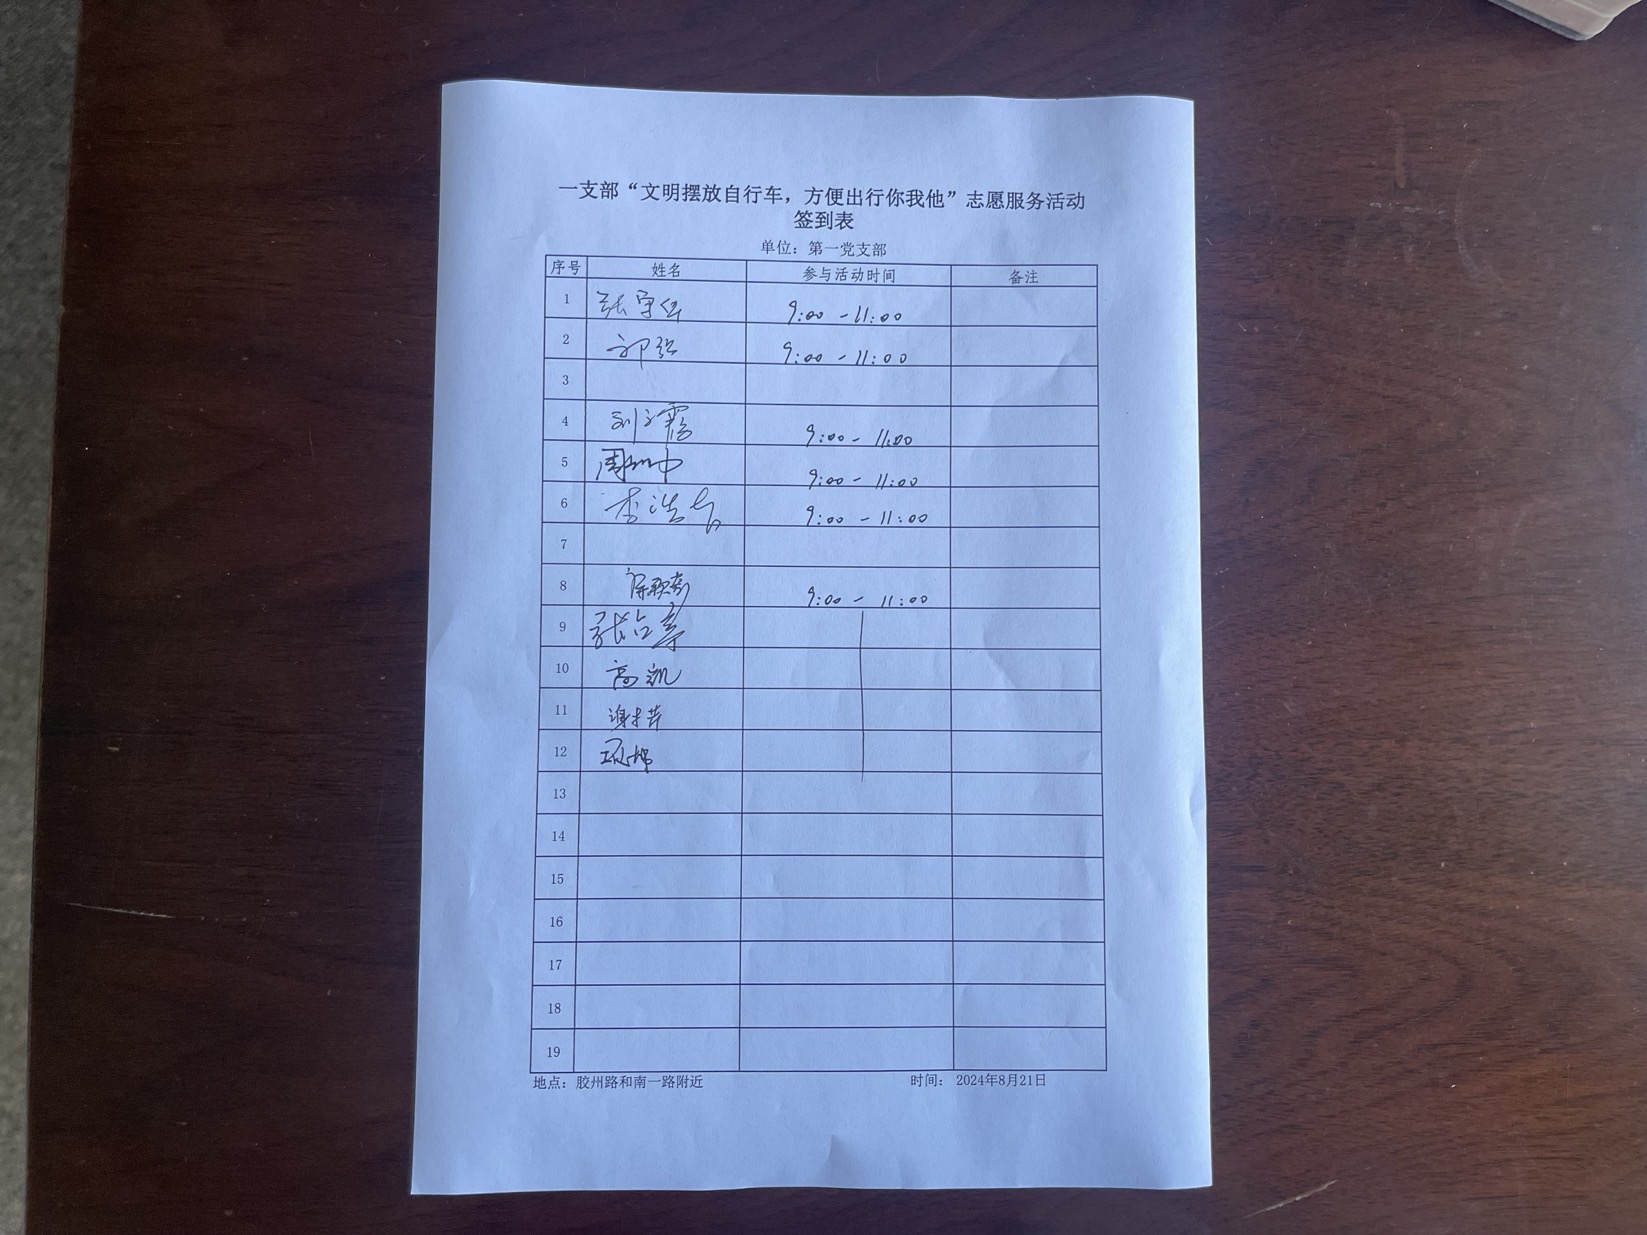 一支部“文明摆放自行车，方便出行你我他”志愿服务活动
签到表
单位：第一党支部
序号 姓名 参与活动时间 备注
1 张守伍 9:00-11:00
2 郭强 9:00-11:00
3
4 刘子霞 9:00-11:00
5 周 中 9:00-11:00
6 李浩 9:00-11:00
7
8 9:00-11:00
9 张
10 高凯
11 谢
12
13
14
15
16
17
18
19
地点：胶州路和南一路附近 时间： 2024年8月21日